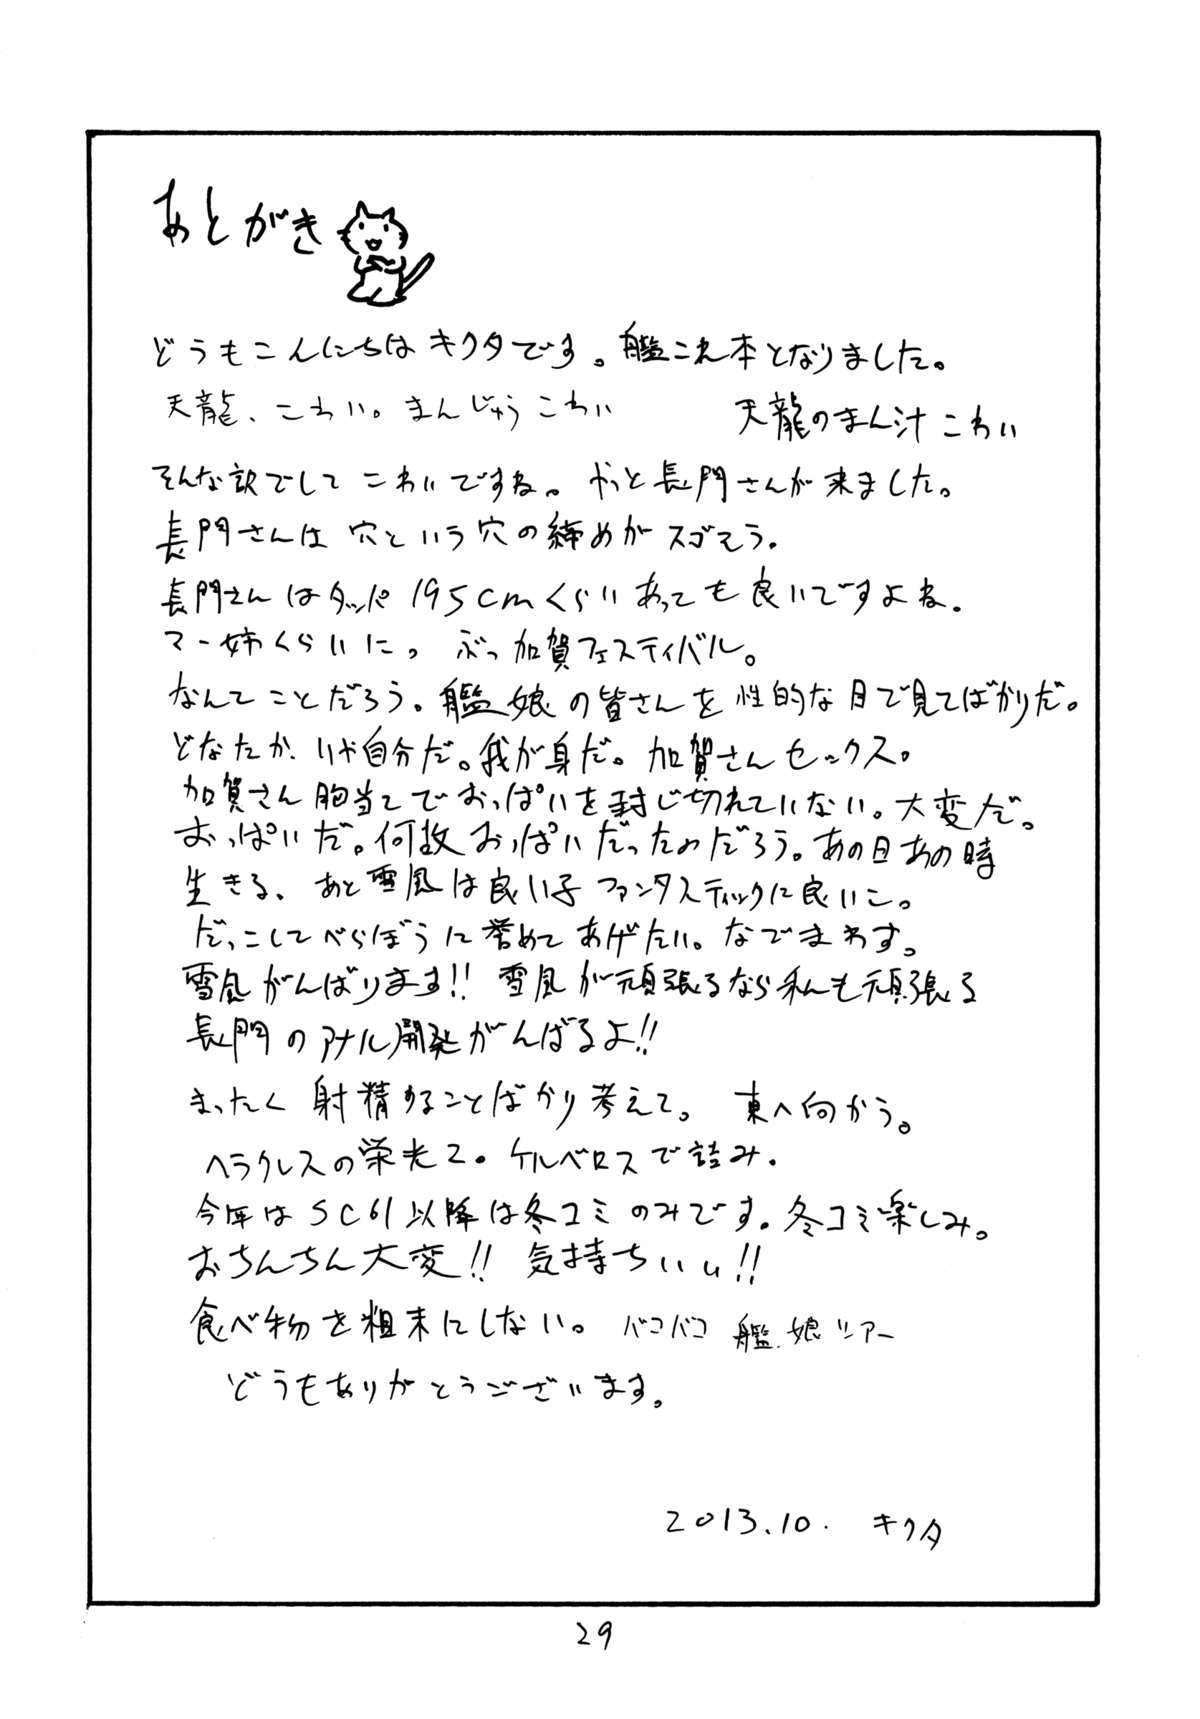 あとがき
どうもこんにちはキクタです。艦これ本となりました。
天龍、こわい。まんじゅうこわい 天龍のまん汁こわい
そんな訳でしてこわいですね。やっと長門さんが来ました。
長門さんは穴という穴の締めがスゴそう。
長門さんはタッパ195cmくらいあっても良いですよね。
マー姉くらいに。ぶっ加賀フェスティバル。
なんてことだろう。艦娘の皆さんを性的な目で見てばかりだ。
どなたか、いや自分だ。我が身だ。加賀さんセックス。
加賀さん胸当てでおっぱいを封じ切れていない。大変だ。
おっぱいだ。何故おっぱいだったのだろう。あの日あの時
生きる、あと雪風は良い子ファンタスティックに良いこ。
だっこしてべらぼうに誉めてあげたい。なでまわす。
雪風がんばります!! 雪風が頑張るなら私も頑張る
長門のアナル開発がんばるよ!!
まったく射精することばかり考えて。 東へ向かう。
ヘラクレスの栄光2。ケルベロスで詰み。
今年はSC61以降は冬コミのみです。冬コミ楽しみ。
おちんちん大変!! 気持ちいい!!
食べ物を粗末にしない。バコバコ 艦娘ツアー
どうもありがとうございます。
2013.10. キクタ
29